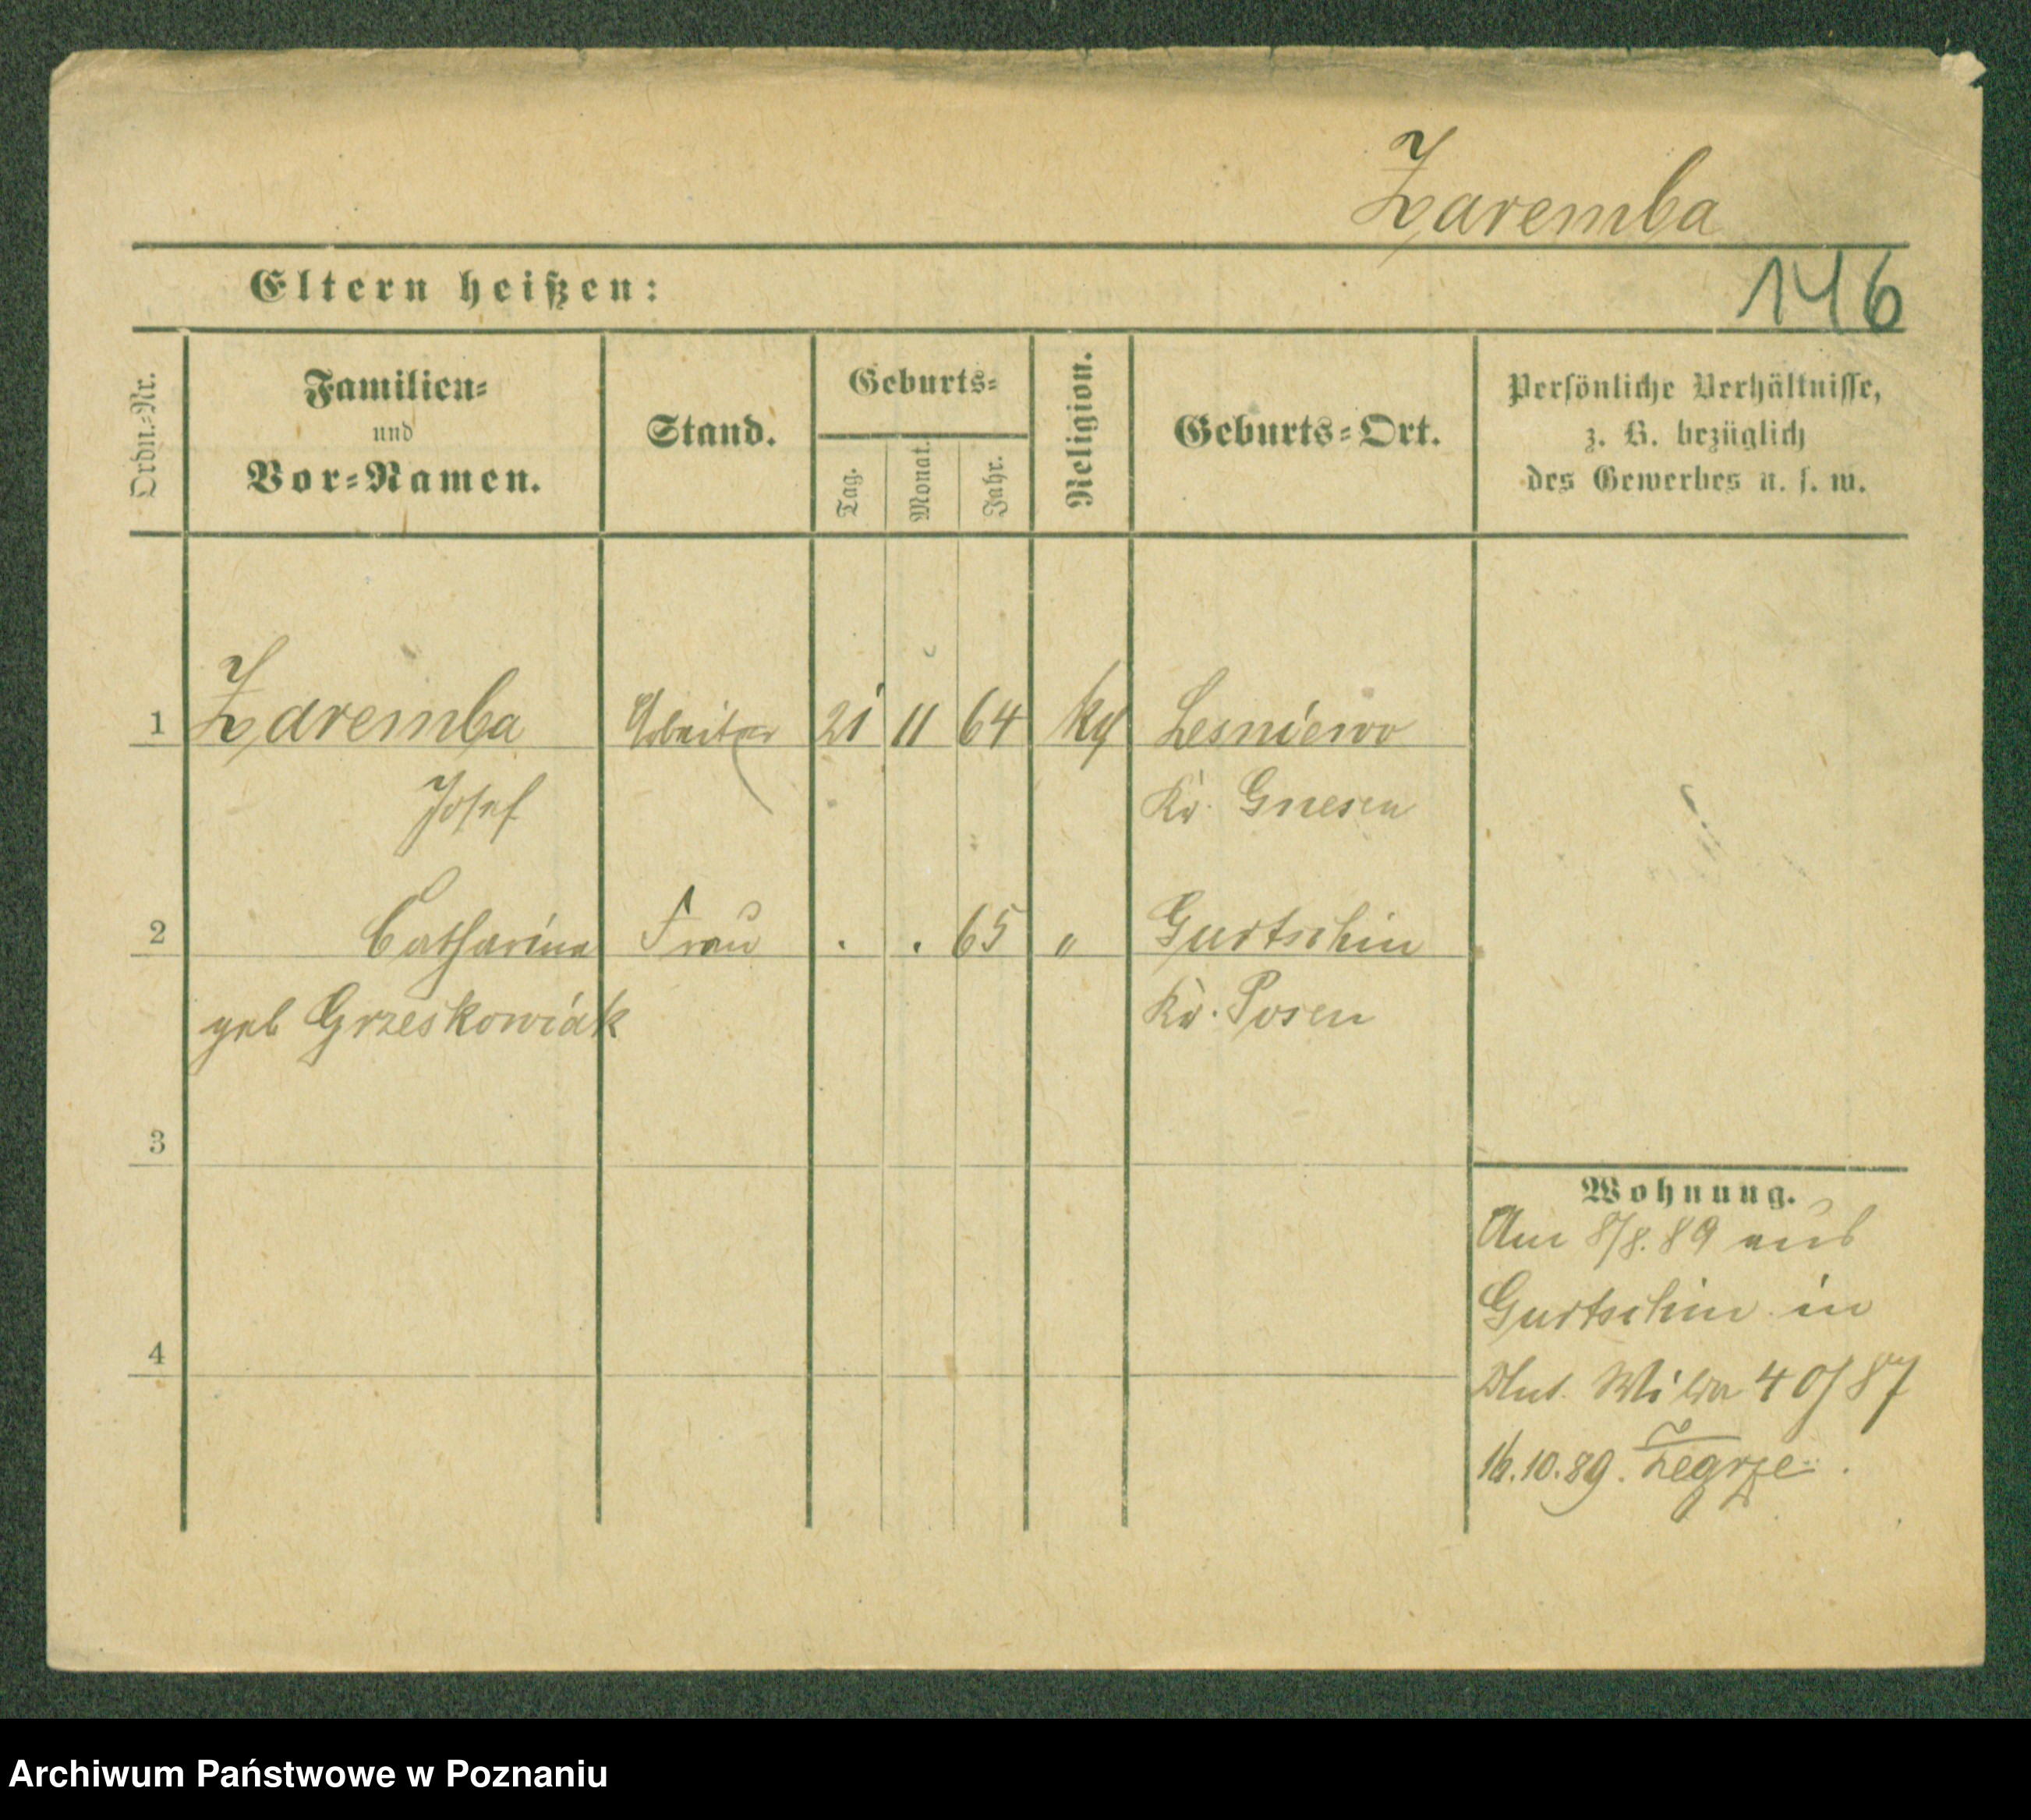 Zaremba
Eltern heißen:
146
Ordn.-Nr.
Familien-
und
Vor-Namen.
Stand.
Geburts-
Tag.
Monat.
Jahr.
Religion.
Geburts-Ort.
Persönliche Verhältnisse,
z. B. bezüglich
des Gewerbes u. s. w.
1 Zaremba Arbeiter 21 11 64 Lesniewo
Josef Kr. Gnesen
2 Catharina Frau . . 65 " Gurtschin
geb Grzeskowiak Kr. Posen
3
4
Wohnung.
Am 8/8.89 aus
Gurtschin in
Wilda 40/87
16.10.89. Zegrze.
Archiwum Państwowe w Poznaniu